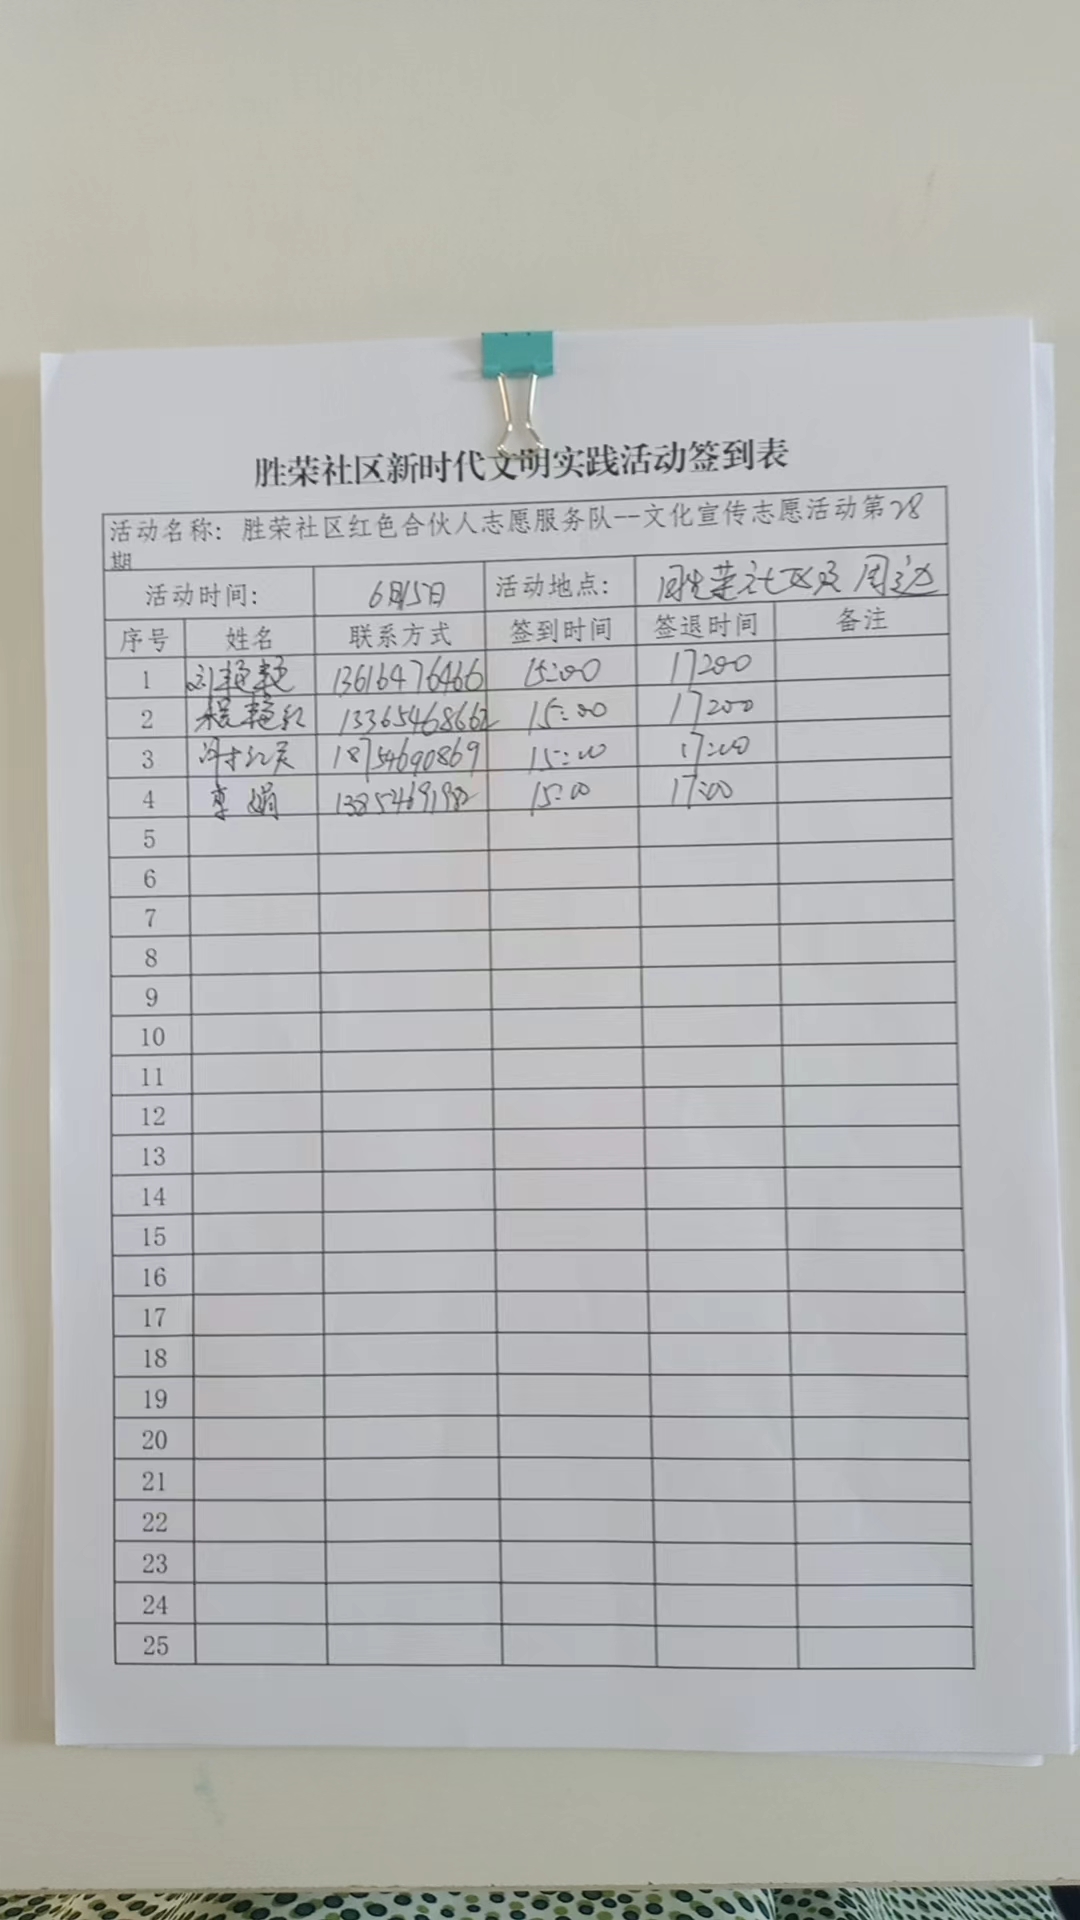 胜荣社区新时代文明实践活动签到表
活动名称：胜荣社区红色合伙人志愿服务队--文化宣传志愿活动第28
期
活动时间： 6月15日 活动地点： 胜荣社区及周边
序号 姓名 联系方式 签到时间 签退时间 备注
1 刘艳艳 13616476466 15:00 17:00
2 程艳红 13365468662 15:00 17:00
3 18754690869 15:00 17:00
4 李娟 13854691982 15:00 17:00
5
6
7
8
9
10
11
12
13
14
15
16
17
18
19
20
21
22
23
24
25